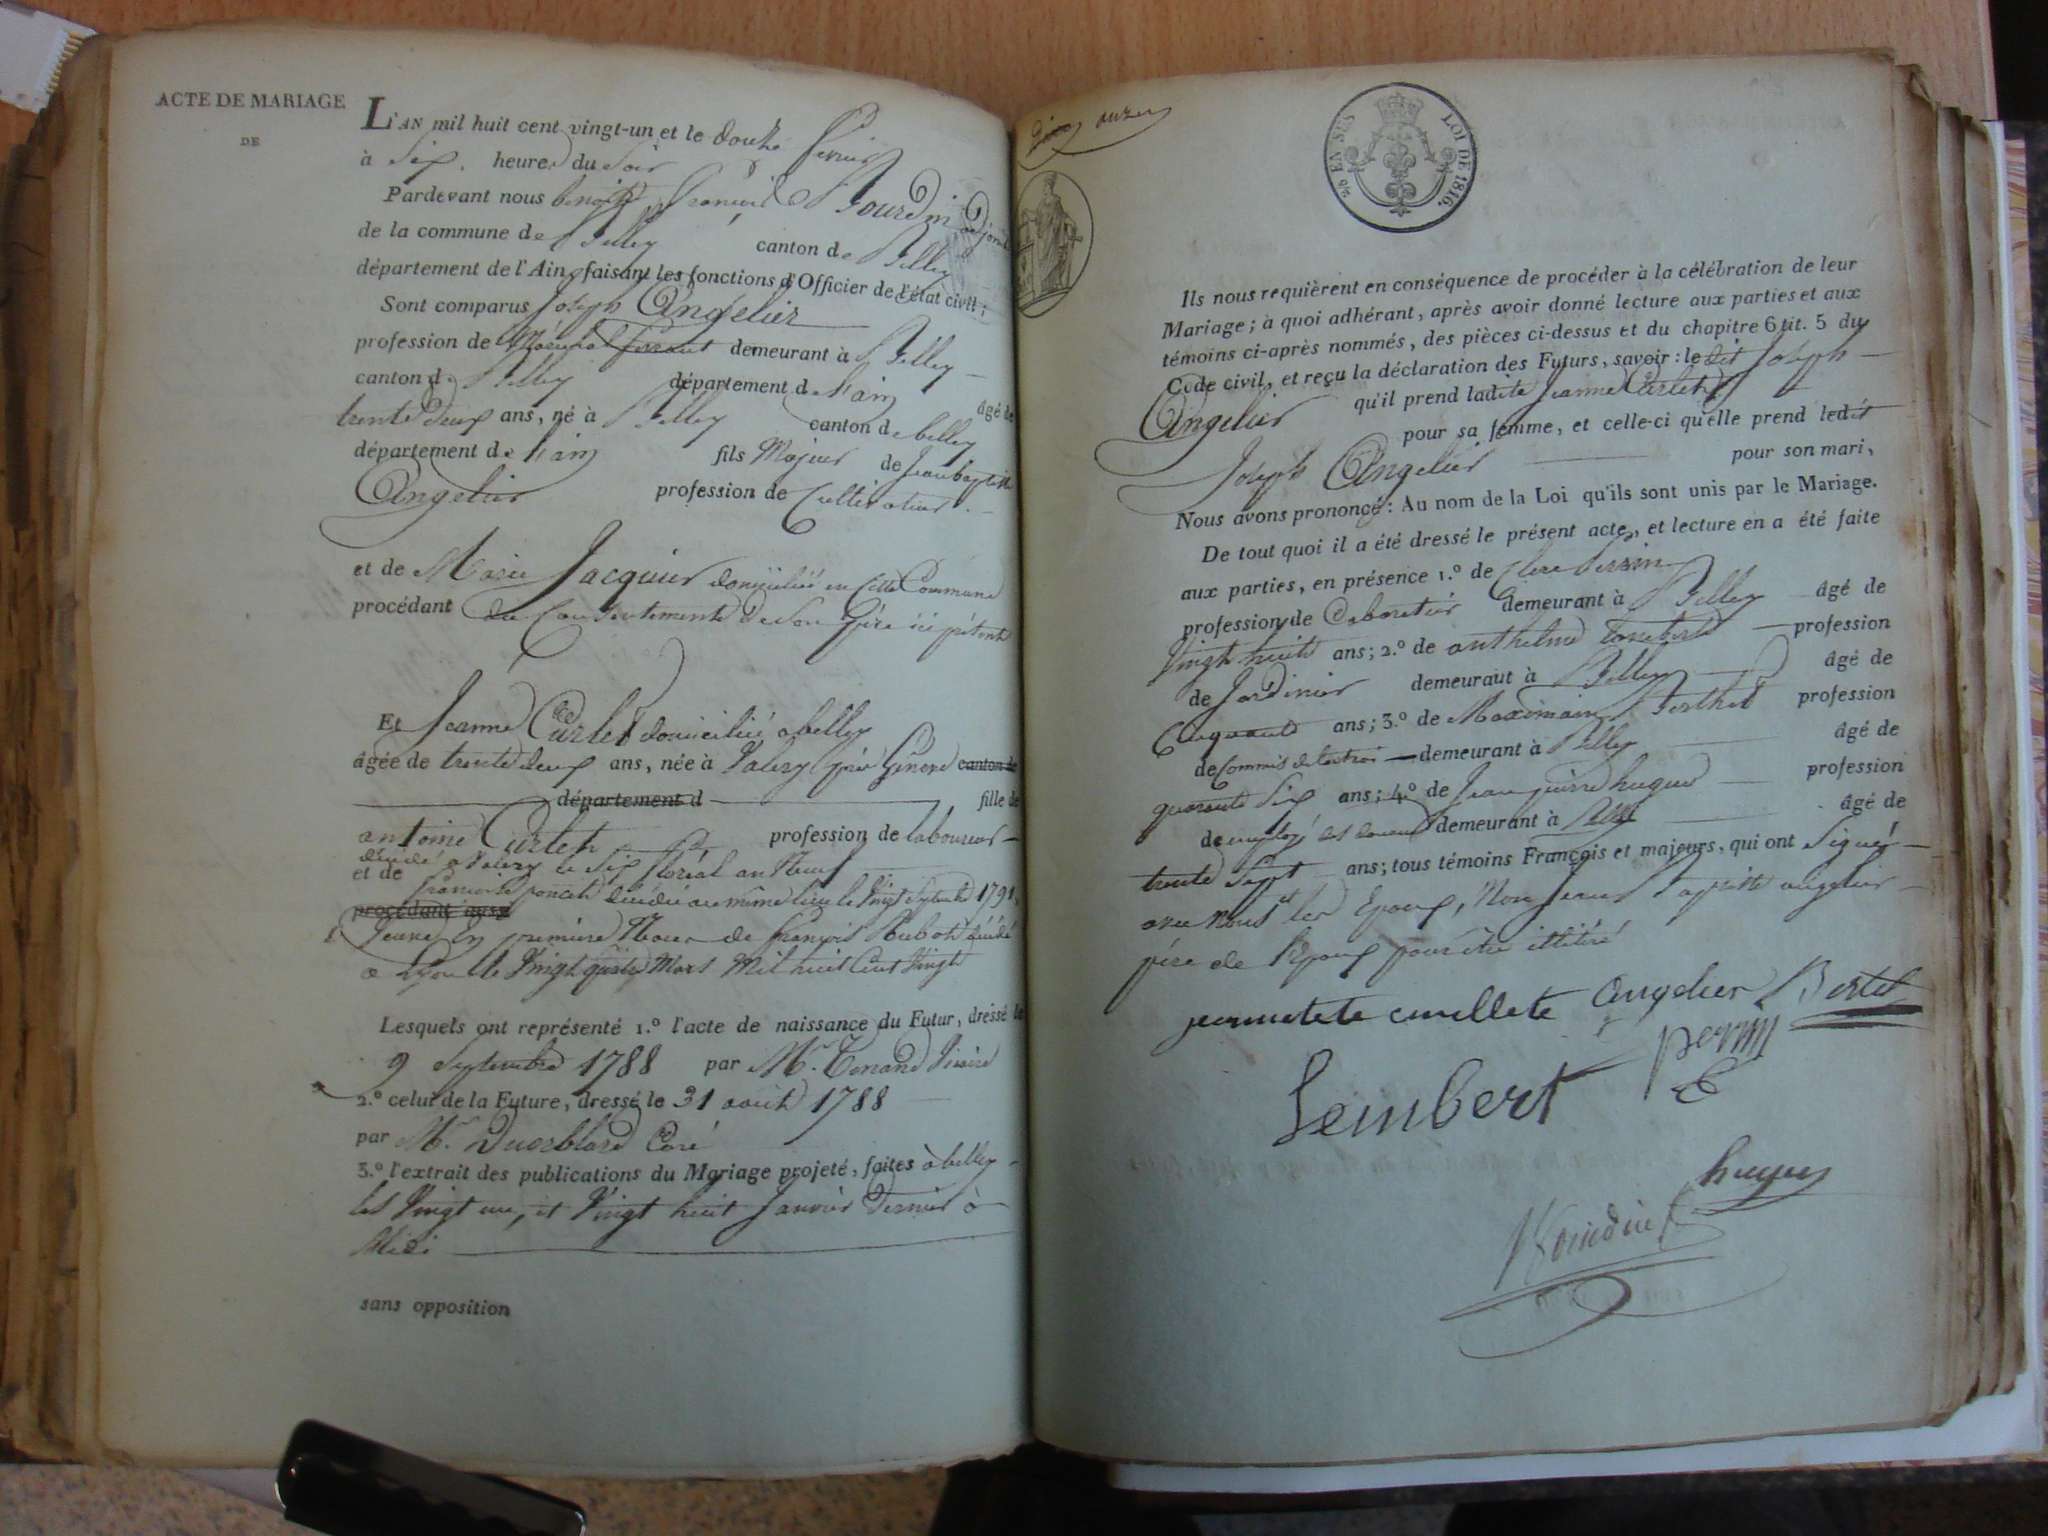 ACTE DE MARIAGE
DE
L'AN mil huit cent vingt-un et le douze fevrier
à Six heures du Soir
Pardevant nous benoit françois Jourdin adjoint
de la commune de Belley canton de Belley
département de l'Ain, faisant les fonctions d'Officier de l'état civil;
Sont comparus Joseph Angelier
profession de Maréchal ferrant demeurant à Belley
canton de Belley département de l'ain âgé de
trente deux ans, né à Belley canton de belley
département de l'ain fils Majeur de Jean baptiste
Angelier profession de Cultivateur
et de Marie Jacquier domiciliée en Cette Commune
procédant du Consentement de Son père ici présent
Et Jeanne Curlet domiciliée a belley
âgée de trente deux ans, née à près Genève canton de
département d fille de
antoine Curlet profession de laboureur
décédé a le Six floréal an Neuf
et de françoise décédée au même lieu le Vingt Septembre 1791,
procédant aussi
Veuve En première Noces de françois décédé
a Lyon le Vingt quatre Mars Mil huit Cent Vingt
Lesquels ont représenté 1.º l'acte de naissance du Futur, dressé le
9 Septembre 1788 par Mr. Tenand Vicaire
2.º celui de la Future, dressé le 31 août 1788
par Mr. Curé
3.º l'extrait des publications du Mariage projeté, faites à belley
les Vingt un, et Vingt huit Janvier Dernier à
Midi
sans opposition
LOI DE 1816.
Ils nous requièrent en conséquence de procéder à la célébration de leur
Mariage; à quoi adhérant, après avoir donné lecture aux parties et aux
témoins ci-après nommés, des pièces ci-dessus et du chapitre 6 tit. 5 du
Code civil, et reçu la déclaration des Futurs, savoir: le dit Joseph
Angelier qu'il prend ladite Jeanne Curlet
pour sa femme, et celle-ci qu'elle prend ledit
Joseph Angelier pour son mari,
Nous avons prononcé: Au nom de la Loi qu'ils sont unis par le Mariage.
De tout quoi il a été dressé le présent acte, et lecture en a été faite
aux parties, en présence 1.º de Perrin
profession de Cabaretier demeurant à Belley âgé de
Vingt huit ans; 2.º de anthelme profession
de Jardinier demeurant à Belley âgé de
Cinquante ans; 3.º de Maximain Berthet profession
de Commis demeurant à Belley âgé de
quarante Six ans; 4.º de Jean pierre hugues profession
de employé des demeurant à âgé de
trente Sept ans; tous témoins Français et majeurs, qui ont Signé
avec Nous et les Epoux, Non Jean Baptiste angelier
père de l'Epoux pour être illitéré
curllete Angelier Bertet
perrin
Lembert
hugues
Jourdin